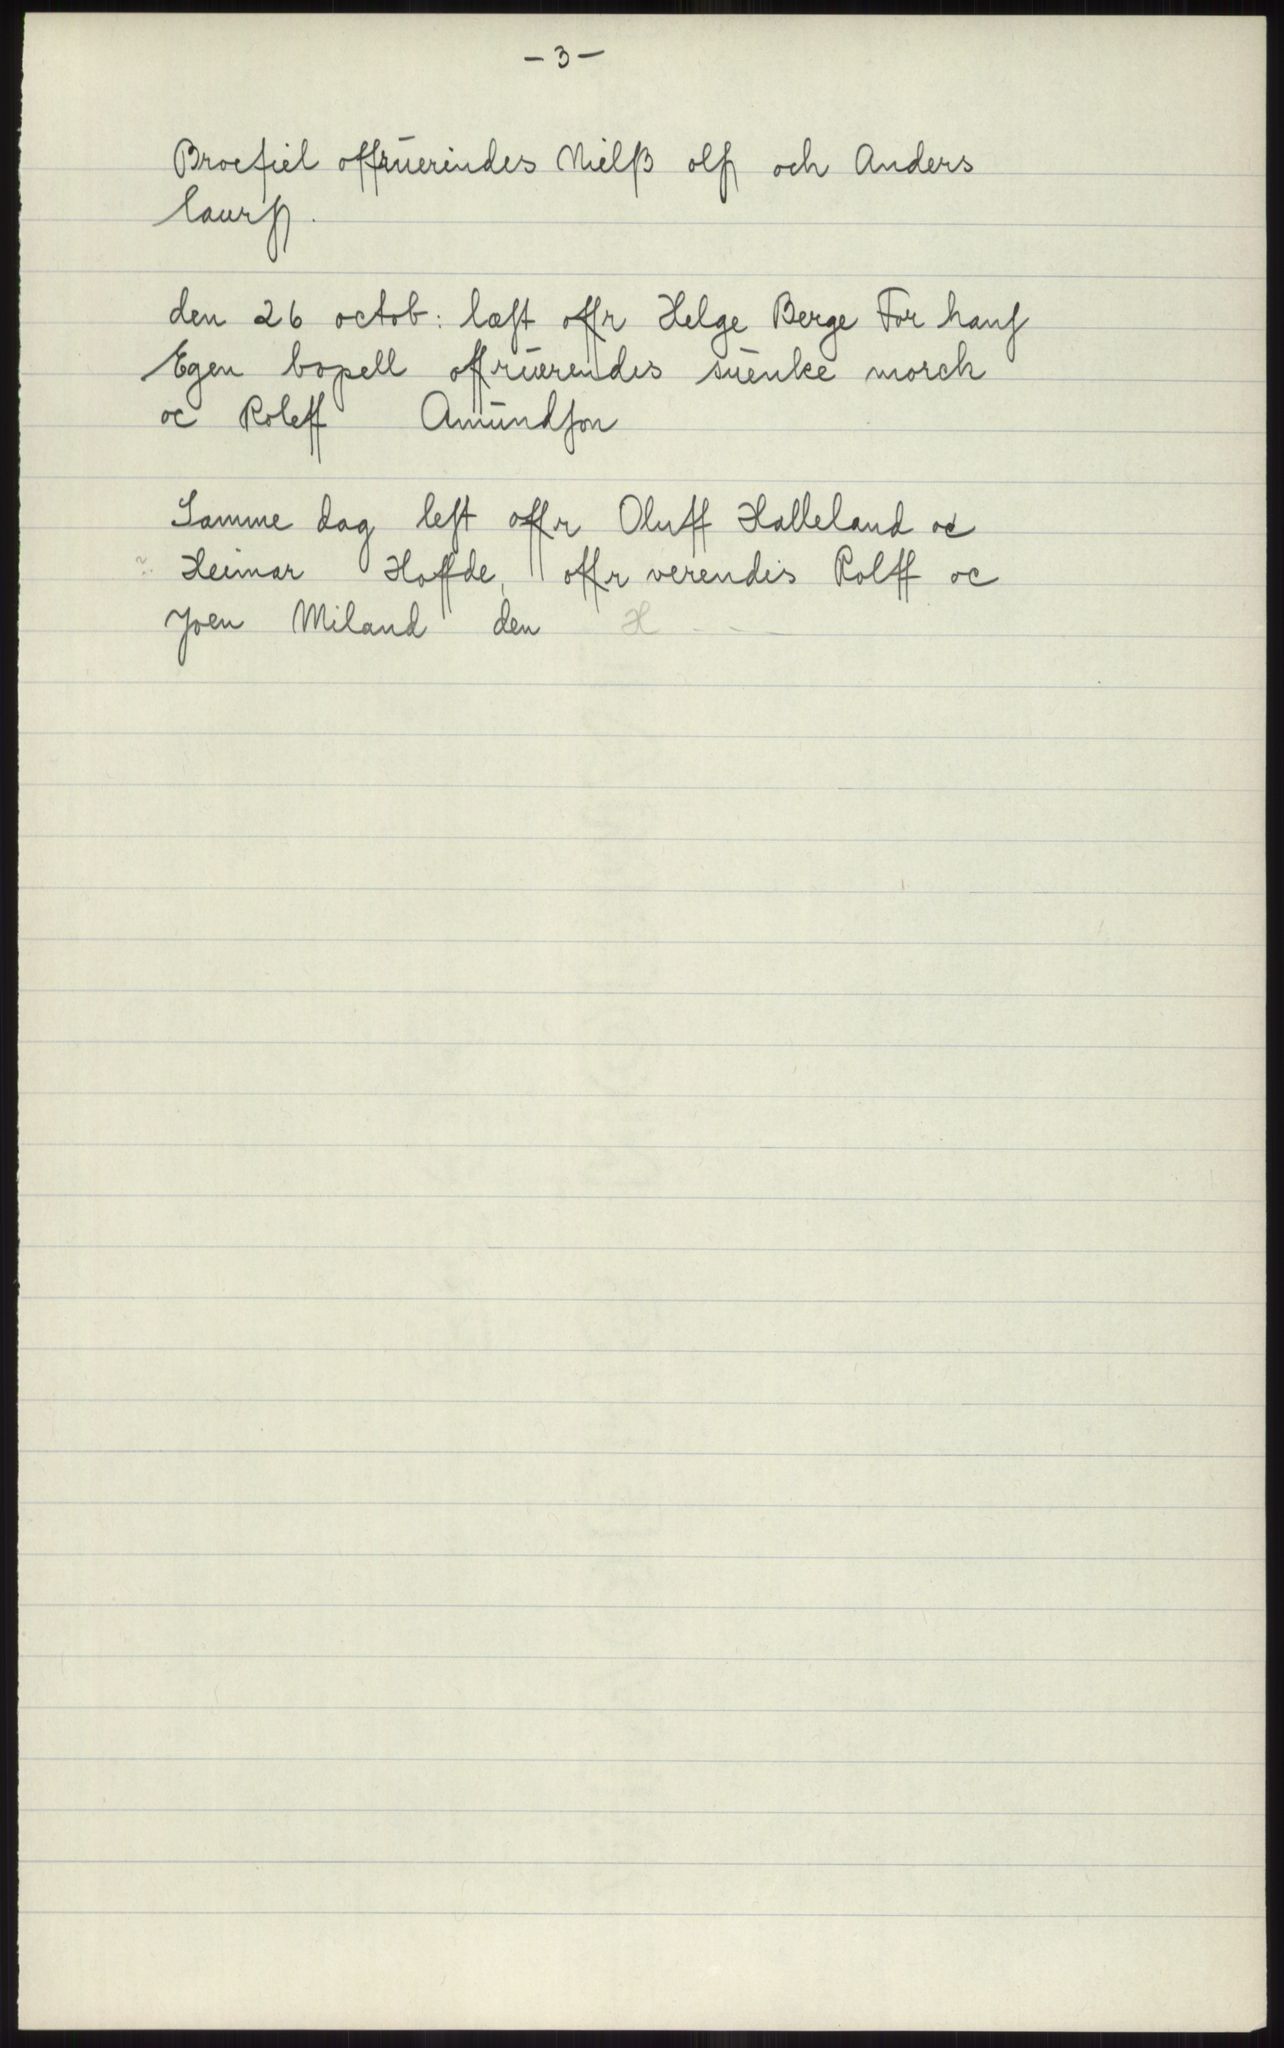 - 3 -
Brocfiel offrŭerindes Nielß olſ och Anders
laurſ.
den 26 octob: læſt offr Helge Berge For hanſ
Egen bopell offrŭærendes sŭenke morck
oc Roleff Amŭndſon
Samme dag leſt offr Oluff Halleland oc
Heimar Hoffde, offr verendis Rolff oc
Joen Miland den H - - -